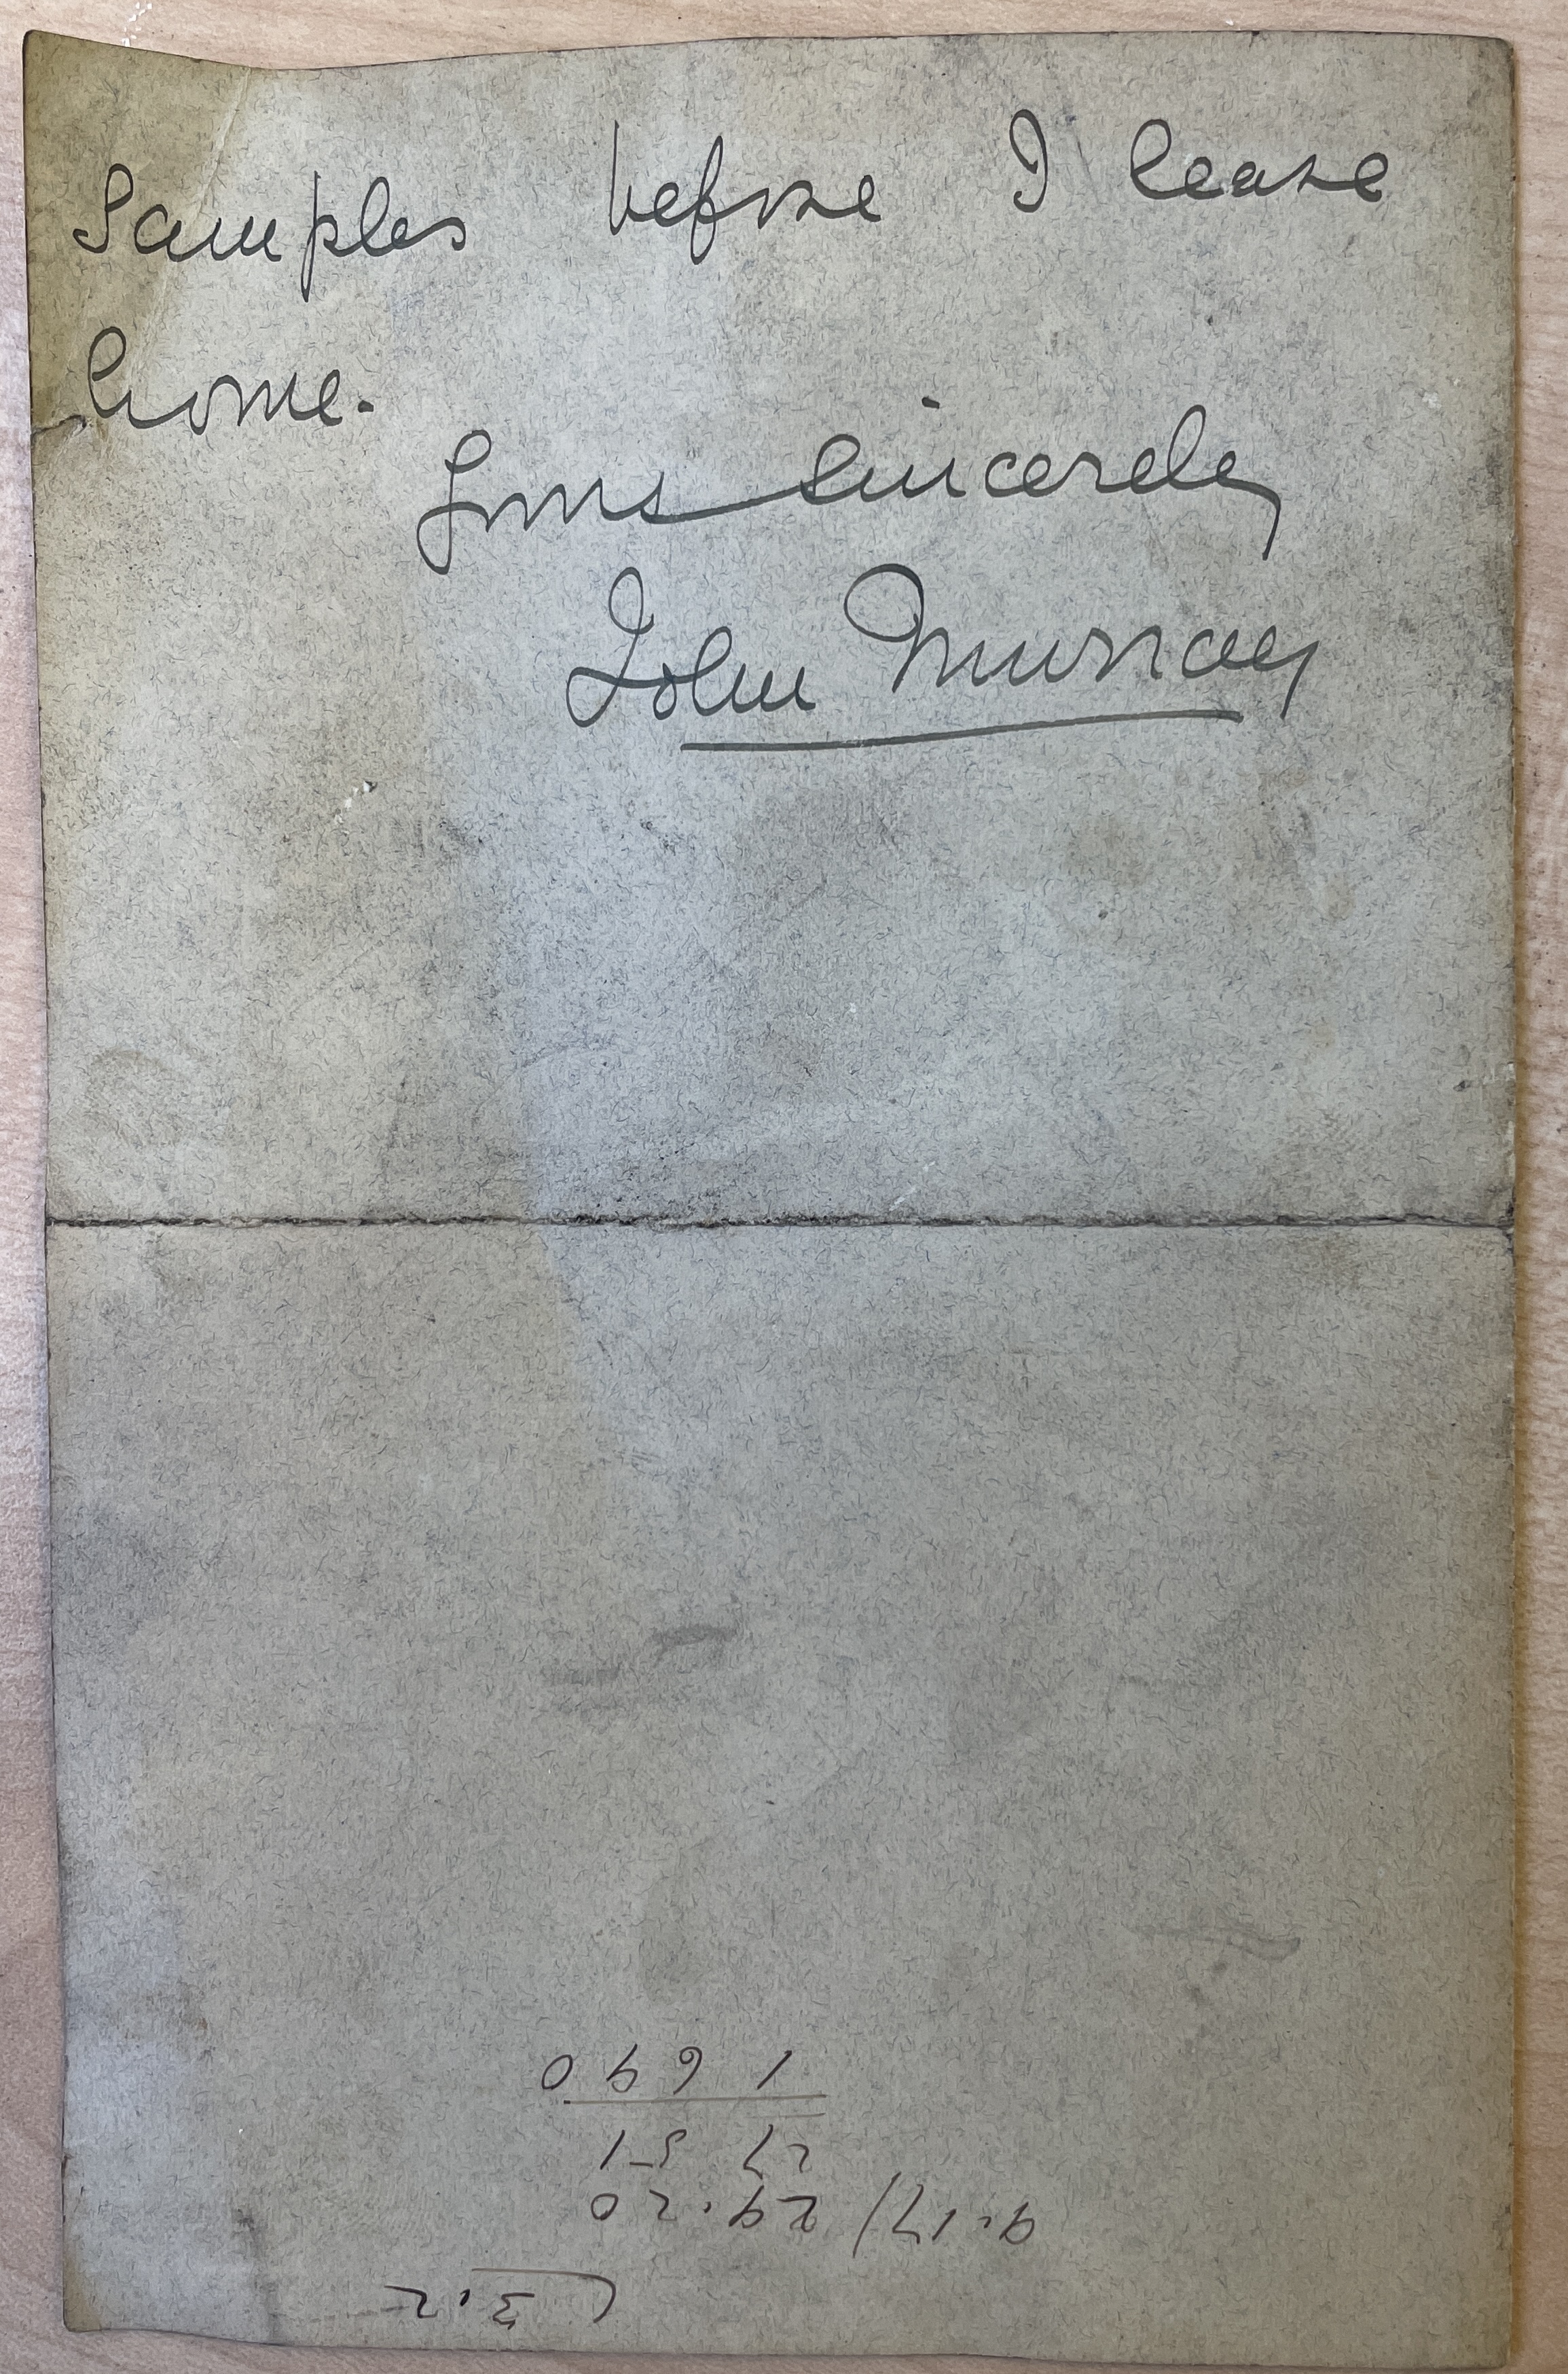 Samples before I leave
home.
Yours sincerely
John Murray
( 3.2
9.17/ 29.20
27 51
1 690